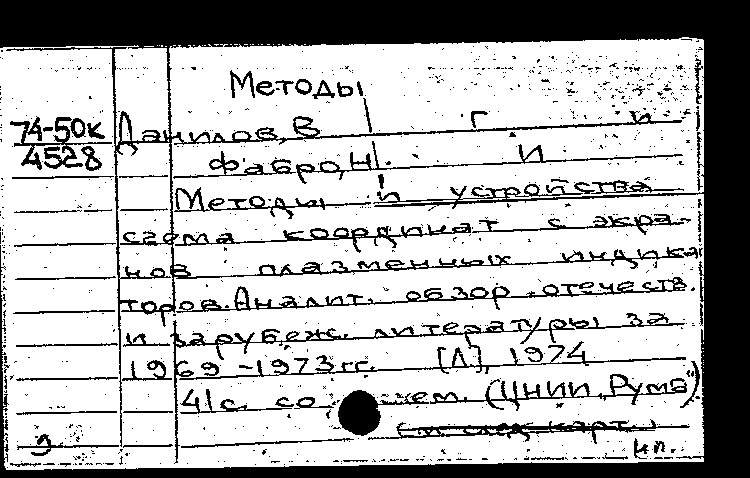 Методы
74-50к Данилов, В. Г. и
4528 Фабро, Н. И.
Методы и устройства
съема координат с экра-
нов плазменных индика
торов. Аналит. обзор отечеств.
и зарубеж. литературы за
1969-1973 гг. [Л], 1974
41 с. со схем. (ЦНИИ "Румб")
(см. след. карт.)
Э ип.